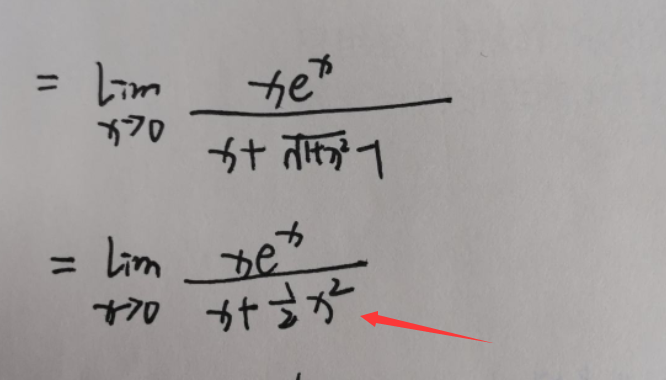 = lim x→0 xe^x / (x + √(1+x²) - 1)
= lim x→0 xe^x / (x + 1/2 x²)